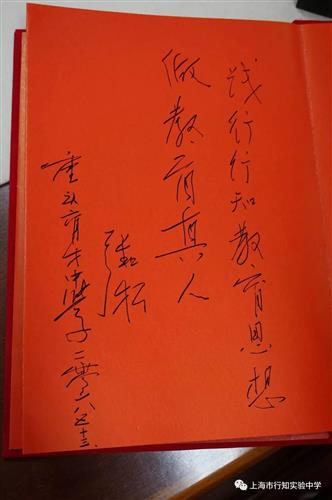 践行行知教育思想
做教育真人
重庆育才中学
二零一八
上海市行知实验中学